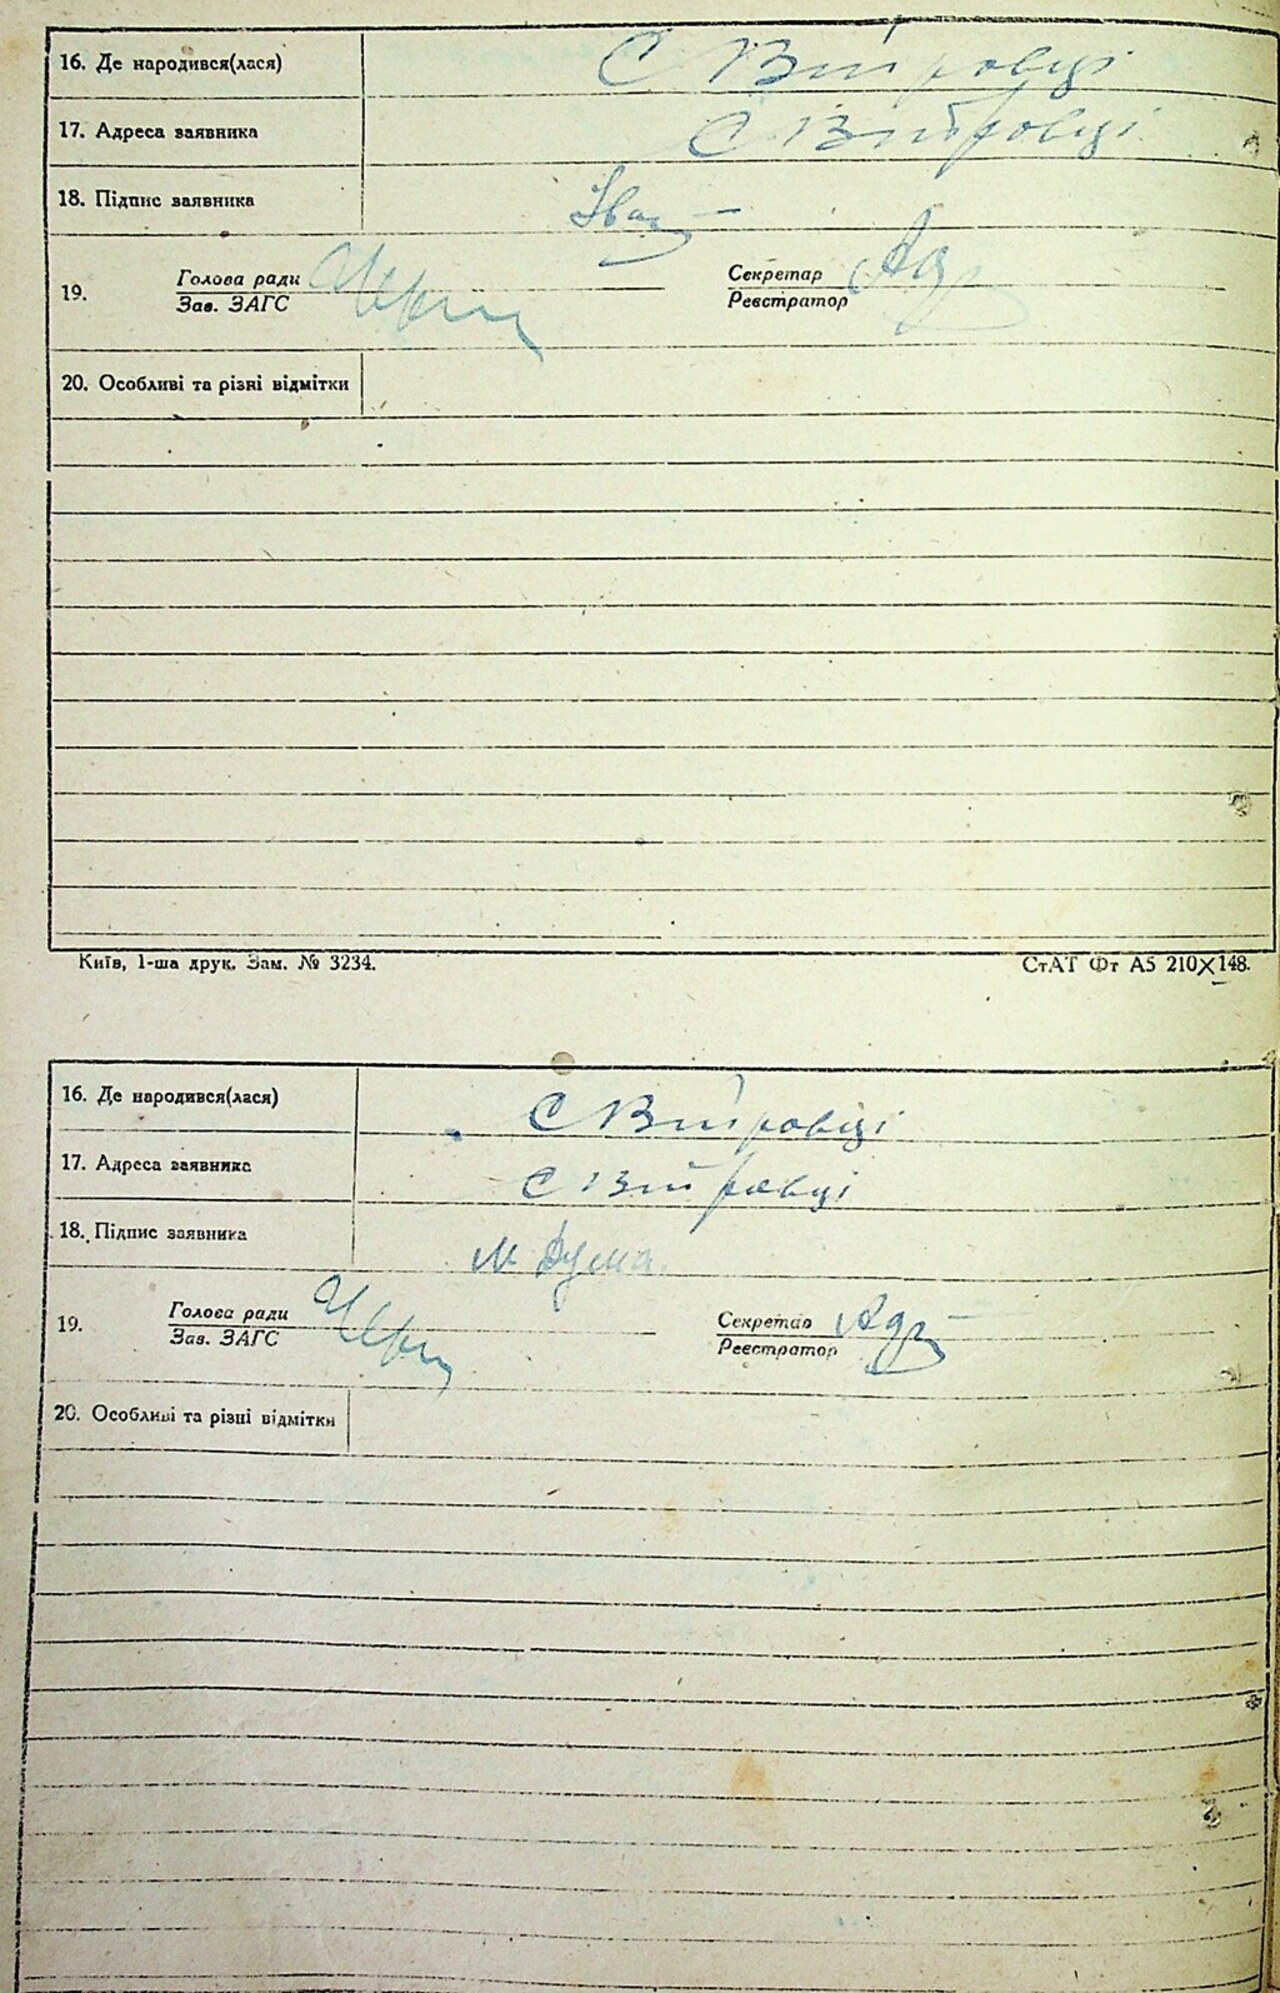 16. Де народився(лася) С Вітровці
17. Адреса заявника С Вітровці
18. Підпис заявника Іван
19. Голова ради Секретар
Зав. ЗАГС Реєстратор
20. Особливі та різні відмітки
Київ, 1-ша друк. Зам. № 3234. СтАТ Фт А5 210X148.
16. Де народився(лася) С Вітровці
17. Адреса заявника С Вітровці
18. Підпис заявника М Дума
19. Голова ради Секретар
Зав. ЗАГС Реєстратор
20. Особливі та різні відмітки